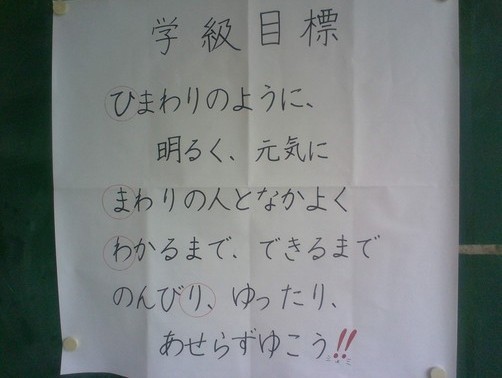 学級目標
ひまわりのように、
明るく、元気に
まわりの人となかよく
わかるまで、できるまで
のんびり、ゆったり、
あせらずゆこう!!